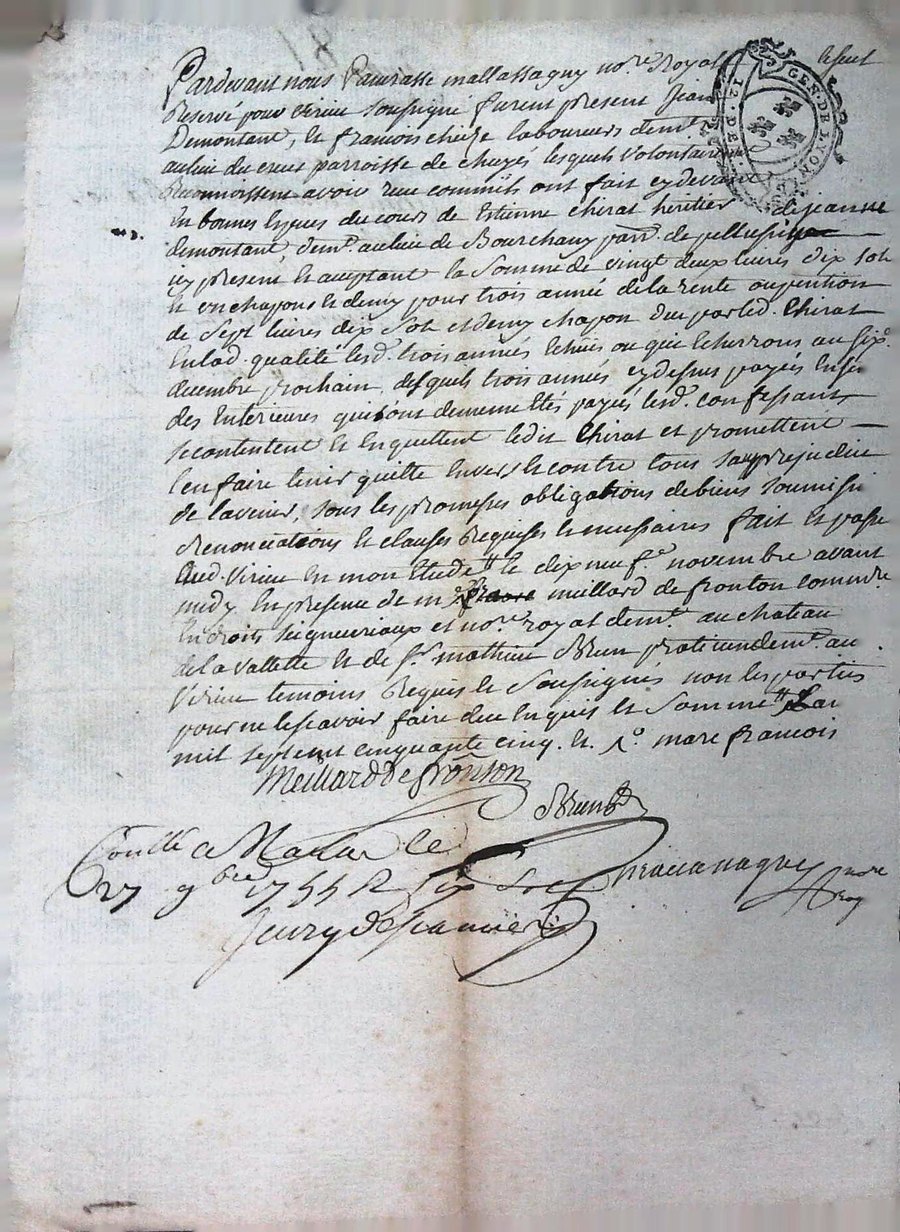 Pardevant nous Pancrasse mallassagny no.re Royal le seul
Reservé pour virieu soussigné furent present Jean
Demontant, et francois chieze laboureurs dem.t
au lieu du creux parroisse de chuyés lesquels volontair
Reconnoissent avoir reçu commils ont fait cydevant
en bonnes espéces du cours de Etienne chirat heritier de jeanne
demontant dem.t au lieu de Bourchany parr. de pellussieu
icy present et aceptant la Somme de vingt deux livres dix sols
et un chapons et demy pour trois année de la rente ou pention
de Sept livres dix Sols et demy chapon due par led. Chirat
en lad. qualité lesd. trois années echües ou qui echerrons au six.e
decembre prochain, desquels trois années cydessus payées ensem
des enterieures qui sont demeurées payés lesd. confessants
se contentent et en quittent ledit Chirat et promettent
l'en faire tenir quitte envers et contre tous sans prejudice
de l'avenir, sous les promesses obligations de biens soumission
renonciations et clauses Requises et necessaires fait et passé
aud. Virieu en mon etude le dix neuf.e novembre avant
midy en presence de m.e meillard de fronton commre
en droits Seigneuriaux et no.re royal dem.t au chateau
de la vallette et de s.r mathieu Brun praticien dem.t au
Virieu temoins Requis et Soussignés non les parties
pour ne le scavoir faire de ce enquis et Sommés L'an
mil septcent cinquante cinq. et marc francois
Meillard de fronton
Brun
Conllé a Malleval le
27 9bre 1755 R six sols
Mallassagny no.re roy
GEN. DE LYON
2. D. LA